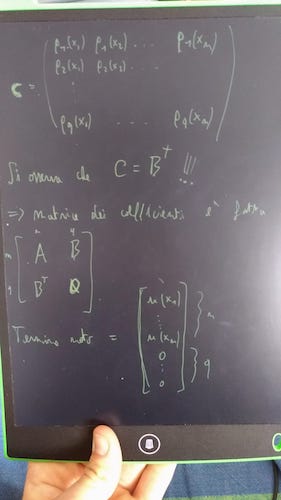 p₁(x₁) p₁(x₂) ... p₁(xₘ)
p₂(x₁) p₂(x₂) ...
C = ⋮
p_q(x₁) ... p_q(xₘ)
Si osserva che C = Bᵀ !!!
⇒ matrice dei coefficienti è fatta
n q
n [ A B
q Bᵀ 0 ]
Termine noto =
u(x₁)
⋮
u(xₘ)
0
⋮
0
} n
} q